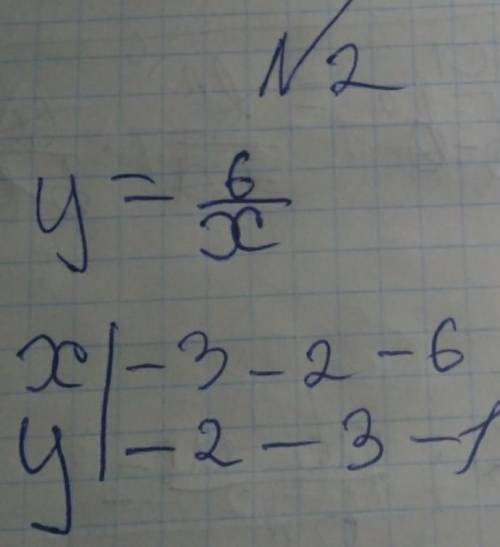 N2
y = 6/x
x | -3 -2 -6
y | -2 -3 -1